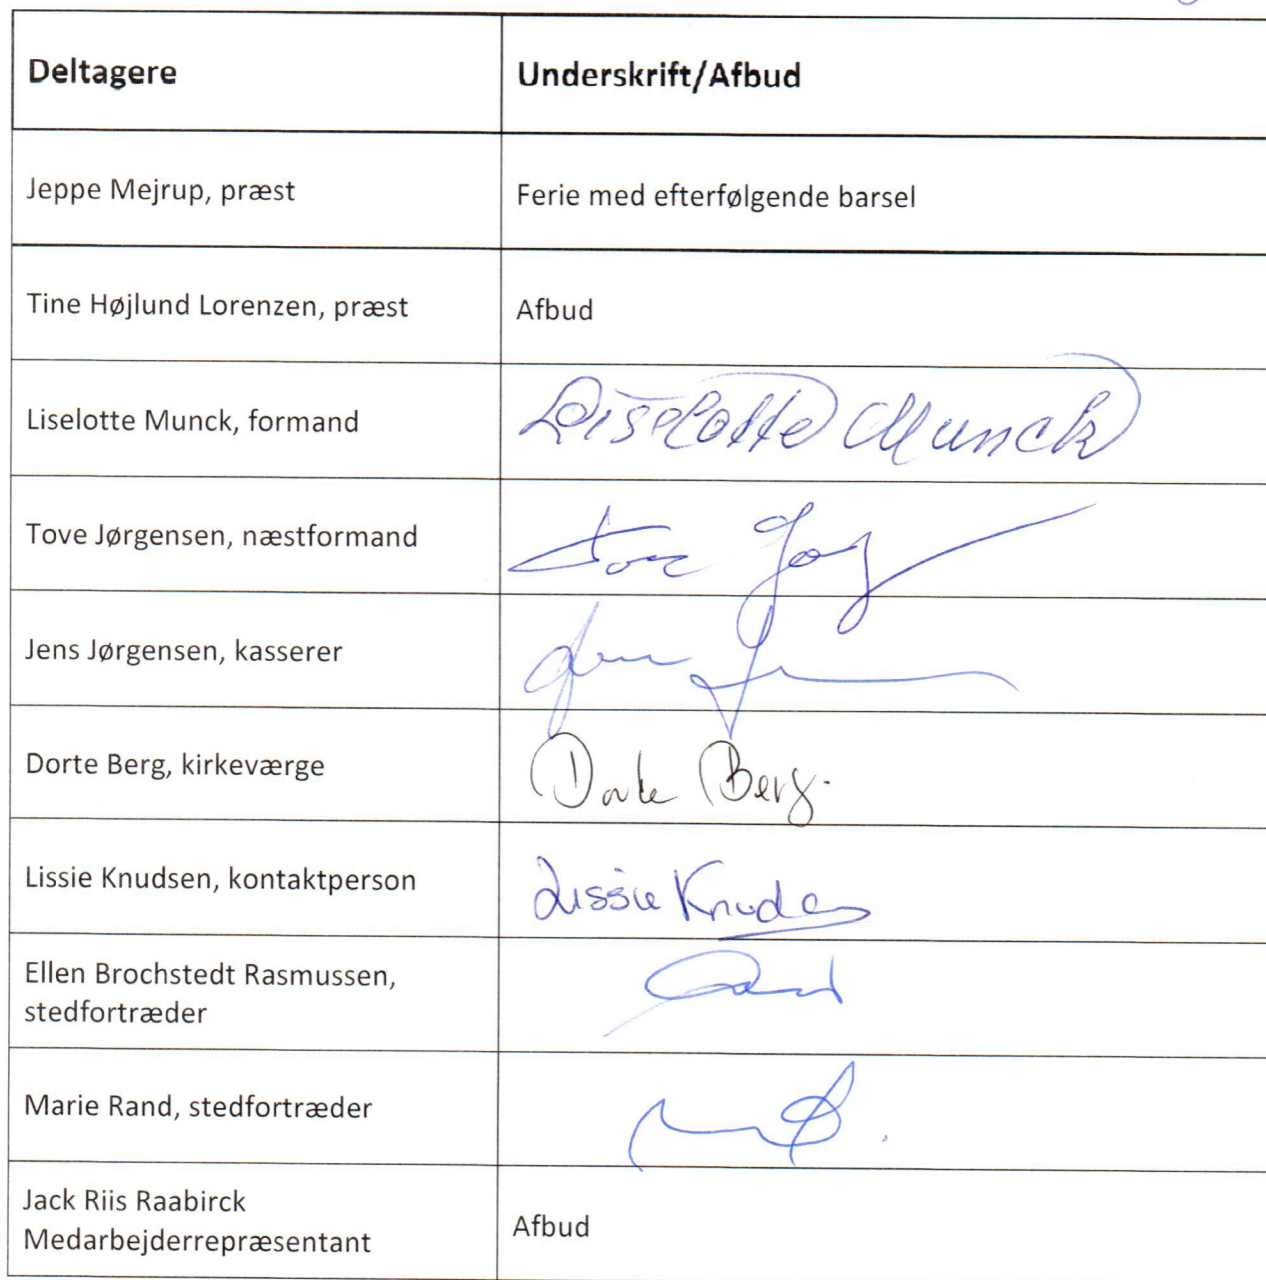 Deltagere
Underskrift/Afbud
Jeppe Mejrup, præst
Ferie med efterfølgende barsel
Tine Højlund Lorenzen, præst
Afbud
Liselotte Munck, formand
Liselotte Munck
Tove Jørgensen, næstformand
Jens Jørgensen, kasserer
Dorte Berg, kirkeværge
Dorte Berg.
Lissie Knudsen, kontaktperson
Lissie Knudsen
Ellen Brochstedt Rasmussen,
stedfortræder
Marie Rand, stedfortræder
Jack Riis Raabirck
Medarbejderrepræsentant
Afbud